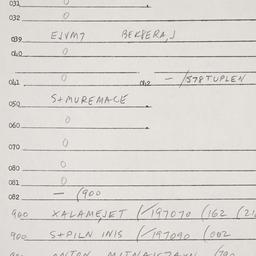 031 0
032 0
039 EJVM7 BEKSERA,J
040 0
041 0 042 - /578TUPLEN
050 S+MUREMACE
060 0
070 0
080 0
081 0
082 - (900
900 XALAMEJET (/197070 (162 (21
900 S+PILN INIS (/197090 (002